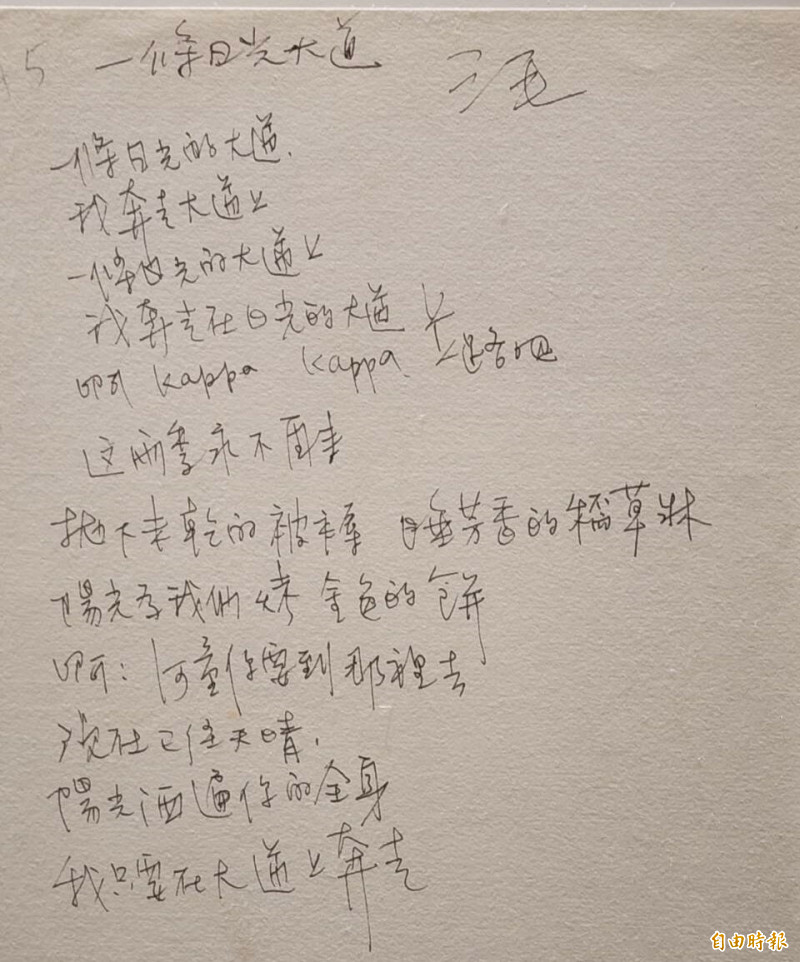 5 一條日光大道
三毛
一條日光的大道.
我奔走大道上
一條日光的大道上
我奔走在日光的大道上
啊 Kappa Kappa. 上路吧
这雨季永不再来
拋下未乾的被褥 睡芳香的稻草床
陽光為我們烤金色的餅
啊: 河童你要到那裡去
现在已经天晴,
陽光洒遍你的全身
我只要在大道上奔走
自由時報